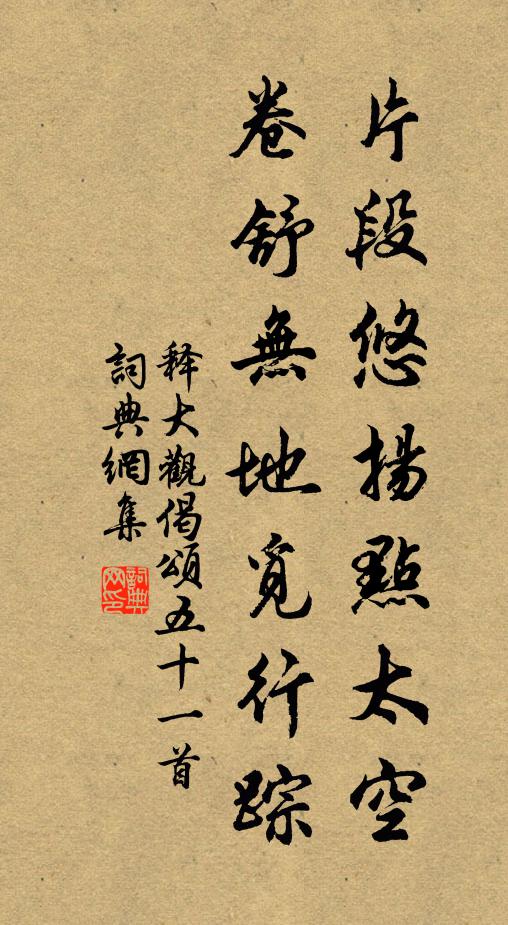 片段悠揚點太空
卷舒無地覓行踪
释大觀偈頌五十一首
詞典網集
詞典网印